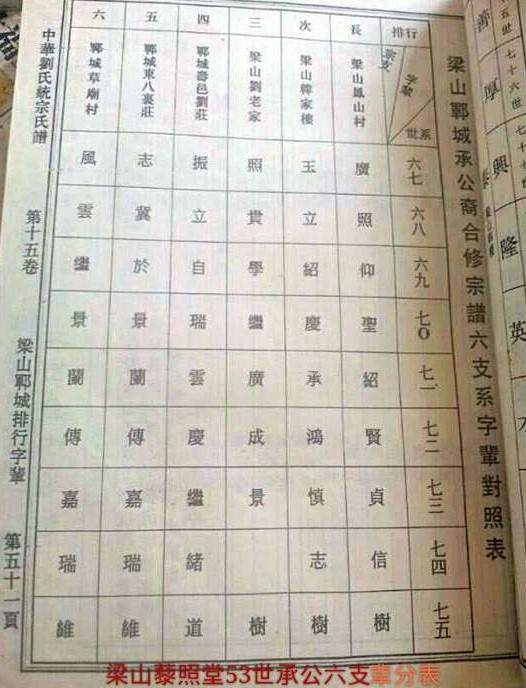 梁山鄆城承公裔合修宗譜六支系字輩對照表
排行 宗支 字輩 世系 六七 六八 六九 七〇 七一 七二 七三 七四 七五
長 梁山鳳山村 廣 照 仰 聖 紹 賢 貞 信 樹
次 梁山韓家樓 玉 立 紹 慶 承 鴻 慎 志 樹
三 梁山劉老家 照 貴 學 繼 廣 成 景 樹
四 鄆城壽邑劉莊 振 立 自 瑞 雲 慶 繼 緒 道
五 鄆城東八裏莊 志 冀 於 景 蘭 傳 嘉 瑞 維
六 鄆城草廟村 風 雲 繼 景 蘭 傳 嘉 瑞 維
中華劉氏統宗氏譜
第十五卷
梁山鄆城排行字輩
第五十一頁
善 厚 興 隆 英
七十六世
梁山藜照堂53世承公六支輩分表